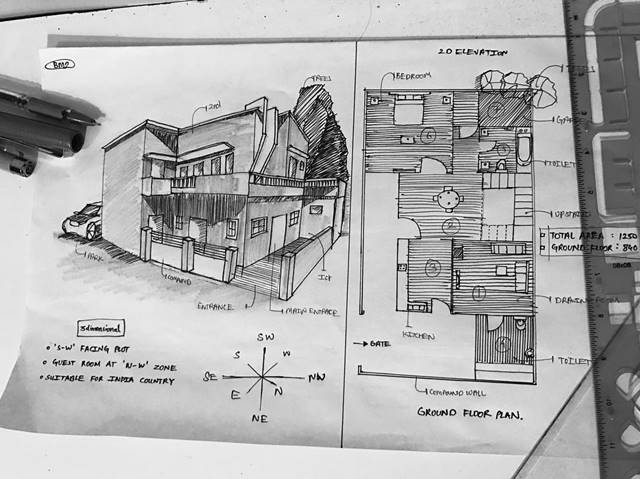 BMD
2nd
TREES
PARK
COMPAND
ENTRANCE
MAIN ENTRACE
1st
3dimensional
'S-W' FACING PLOT
GUEST ROOM AT 'N-W' ZONE
SUITABLE FOR INDIA COUNTRY
SW
S W
SE NW
E N
NE
2D ELEVATION
BEDROOM
TOILET
UPSTAIRS
TOTAL AREA : 1250
GROUND FLOOR : 840
DRAWING ROOM
KITCHEN
GATE
TOILET
COMPOUND WALL
GROUND FLOOR PLAN.